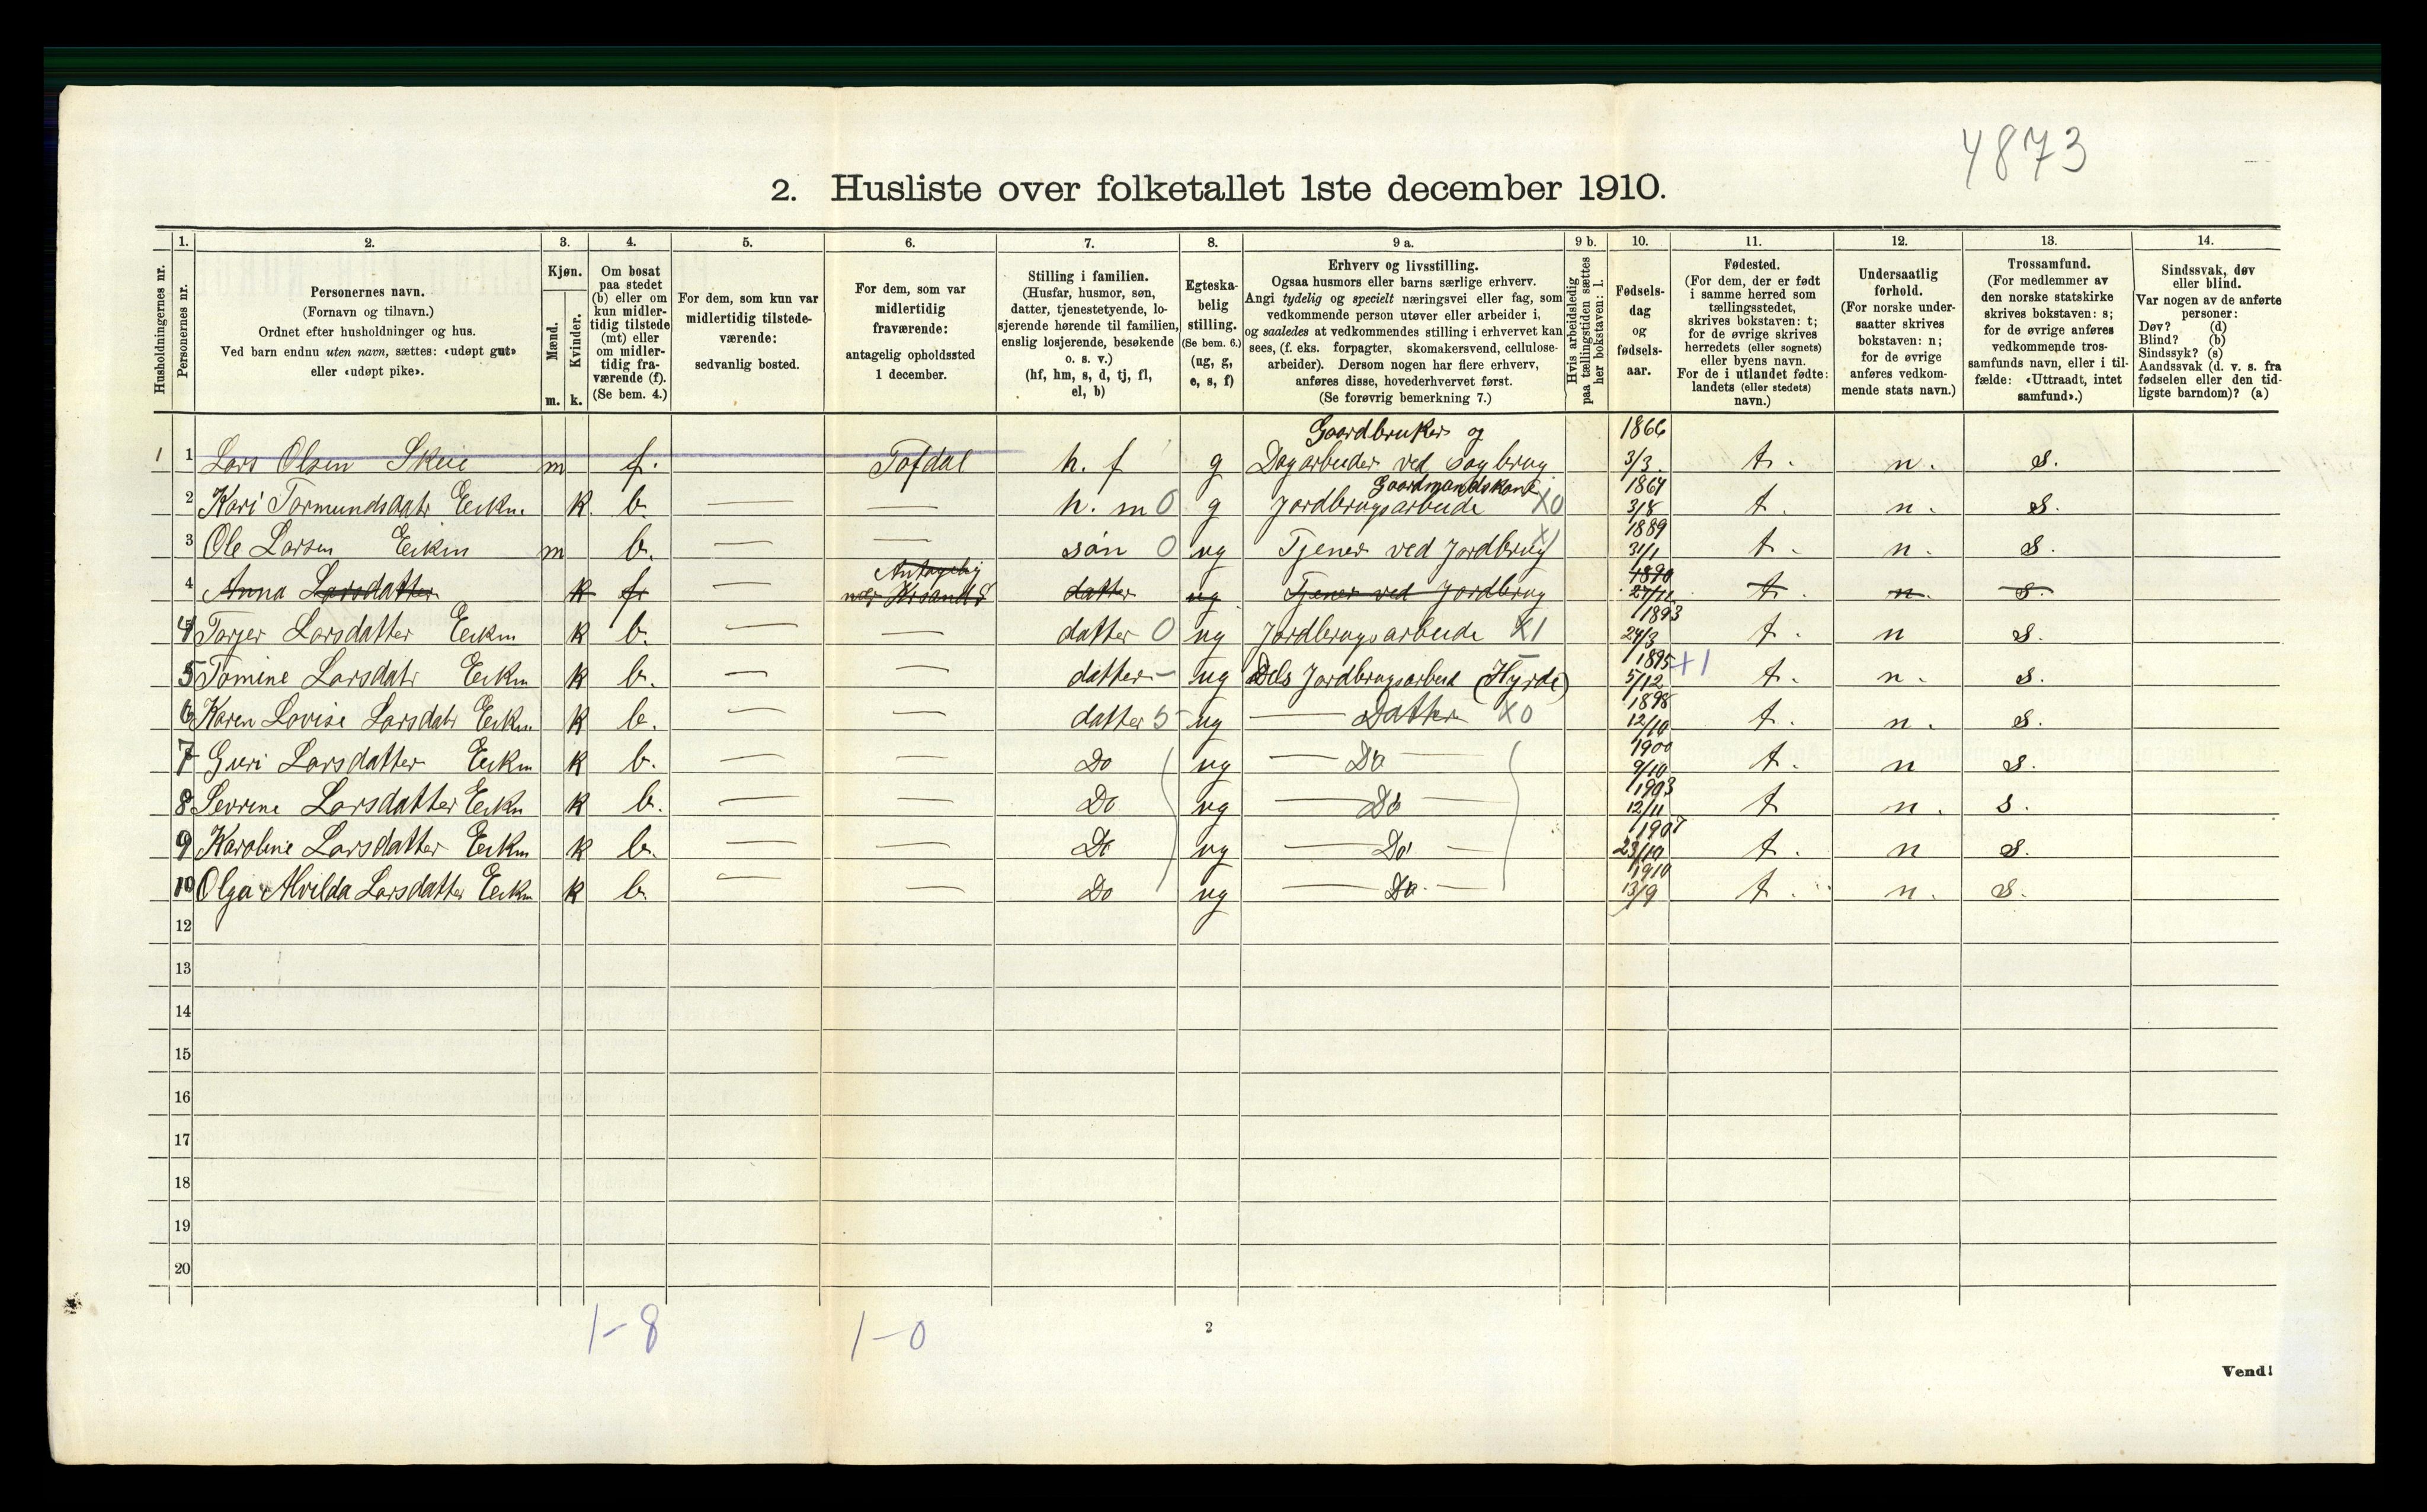 4873
2. Husliste over folketallet 1ste december 1910.
Husholdningernes nr.
1.
Personernes nr.
2.
Personernes navn.
(Fornavn og tilnavn.)
Ordnet efter husholdninger og hus.
Ved barn endnu uten navn, sættes: «udøpt gut»
eller «udøpt pike».
3.
Kjøn.
Mænd.
Kvinder.
m. k.
4.
Om bosat
paa stedet
(b) eller om
kun midler-
tidig tilstede
(mt) eller
om midler-
tidig fra-
værende (f).
(Se bem. 4.)
5.
For dem, som kun var
midlertidig tilstede-
værende:
sedvanlig bosted.
6.
For dem, som var
midlertidig
fraværende:
antagelig opholdssted
1 december.
7.
Stilling i familien.
(Husfar, husmor, søn,
datter, tjenestetyende, lo-
sjerende hørende til familien,
enslig losjerende, besøkende
o. s. v.)
(hf, hm, s, d, tj, fl,
el, b)
8.
Egteska-
belig
stilling.
(Se bem. 6.)
(ug, g,
e, s, f)
9 a.
Erhverv og livsstilling.
Ogsaa husmors eller barns særlige erhverv.
Angi tydelig og specielt næringsvei eller fag, som
vedkommende person utøver eller arbeider i,
og saaledes at vedkommendes stilling i erhvervet kan
sees, (f. eks. forpagter, skomakersvend, cellulose-
arbeider). Dersom nogen har flere erhverv,
anføres disse, hovederhvervet først.
(Se forøvrig bemerkning 7.)
9 b.
Hvis arbeidsledig
paa tællingstiden sættes
her bokstaven: l.
10.
Fødsels-
dag
og
fødsels-
aar.
11.
Fødested.
(For dem, der er født
i samme herred som
tællingsstedet,
skrives bokstaven: t;
for de øvrige skrives
herredets (eller sognets)
eller byens navn.
For de i utlandet fødte:
landets (eller stedets)
navn.)
12.
Undersaatlig
forhold.
(For norske under-
saatter skrives
bokstaven: n;
for de øvrige
anføres vedkom-
mende stats navn.)
13.
Trossamfund.
(For medlemmer av
den norske statskirke
skrives bokstaven: s;
for de øvrige anføres
vedkommende tros-
samfunds navn, eller i til-
fælde: «Uttraadt, intet
samfund».)
14.
Sindssvak, døv
eller blind.
Var nogen av de anførte
personer:
Døv? (d)
Blind? (b)
Sindssyk? (s)
Aandssvak (d. v. s. fra
fødselen eller den tid-
ligste barndom)? (a)
Gaardbruker og 1866
1 1 Lars Olsen Skeie m f. Tofdal h. f g Dagarbeider ved Sagbrug 3/3. t. n. s.
Gaardmandskone 1864
2 Kari Tormundsdatr k. b. — — h. m 0 g Jordbrugsarbeide X0 3/8 t. n. s.
1889
3 Ole Larsen m b. — — søn 0 ug Tjener ved Jordbrug X1 31/1 t. n. s.
Antagelig 1890
4 Anna Larsdatter k f — nær datter ug Tjener ved Jordbrug 27/12 t. n. s.
1893
4 Torjer Larsdatter k b. — — datter 0 ug Jordbrugsarbeide X1 24/3 t. n s.
1895 +1
5 Tomine Larsdatr k b. — — datter - ug Dels Jordbrugsarbeid (Hyrde) 5/12 t. n. s.
1898
6 Karen Lovise Larsdatr k b. — — datter 5 - ug — Datter X0 12/10 t. n. s.
1900
7 Guri Larsdatter k b. — — Do ug — Do — 9/10 t. n s.
1903
8 Sevrine Larsdatter k b. — — Do ug — Do — 12/11 t n. s.
1907
9 Karoline Larsdatter k b. — — Do ug — Do — 23/10 t. n s.
1910
10 Olga Alvilda Larsdatter k b. — — Do ug — Do — 13/9 t. n. s.
12
13
14
15
16
17
18
19
20
1-8 1-0
2
Vend!